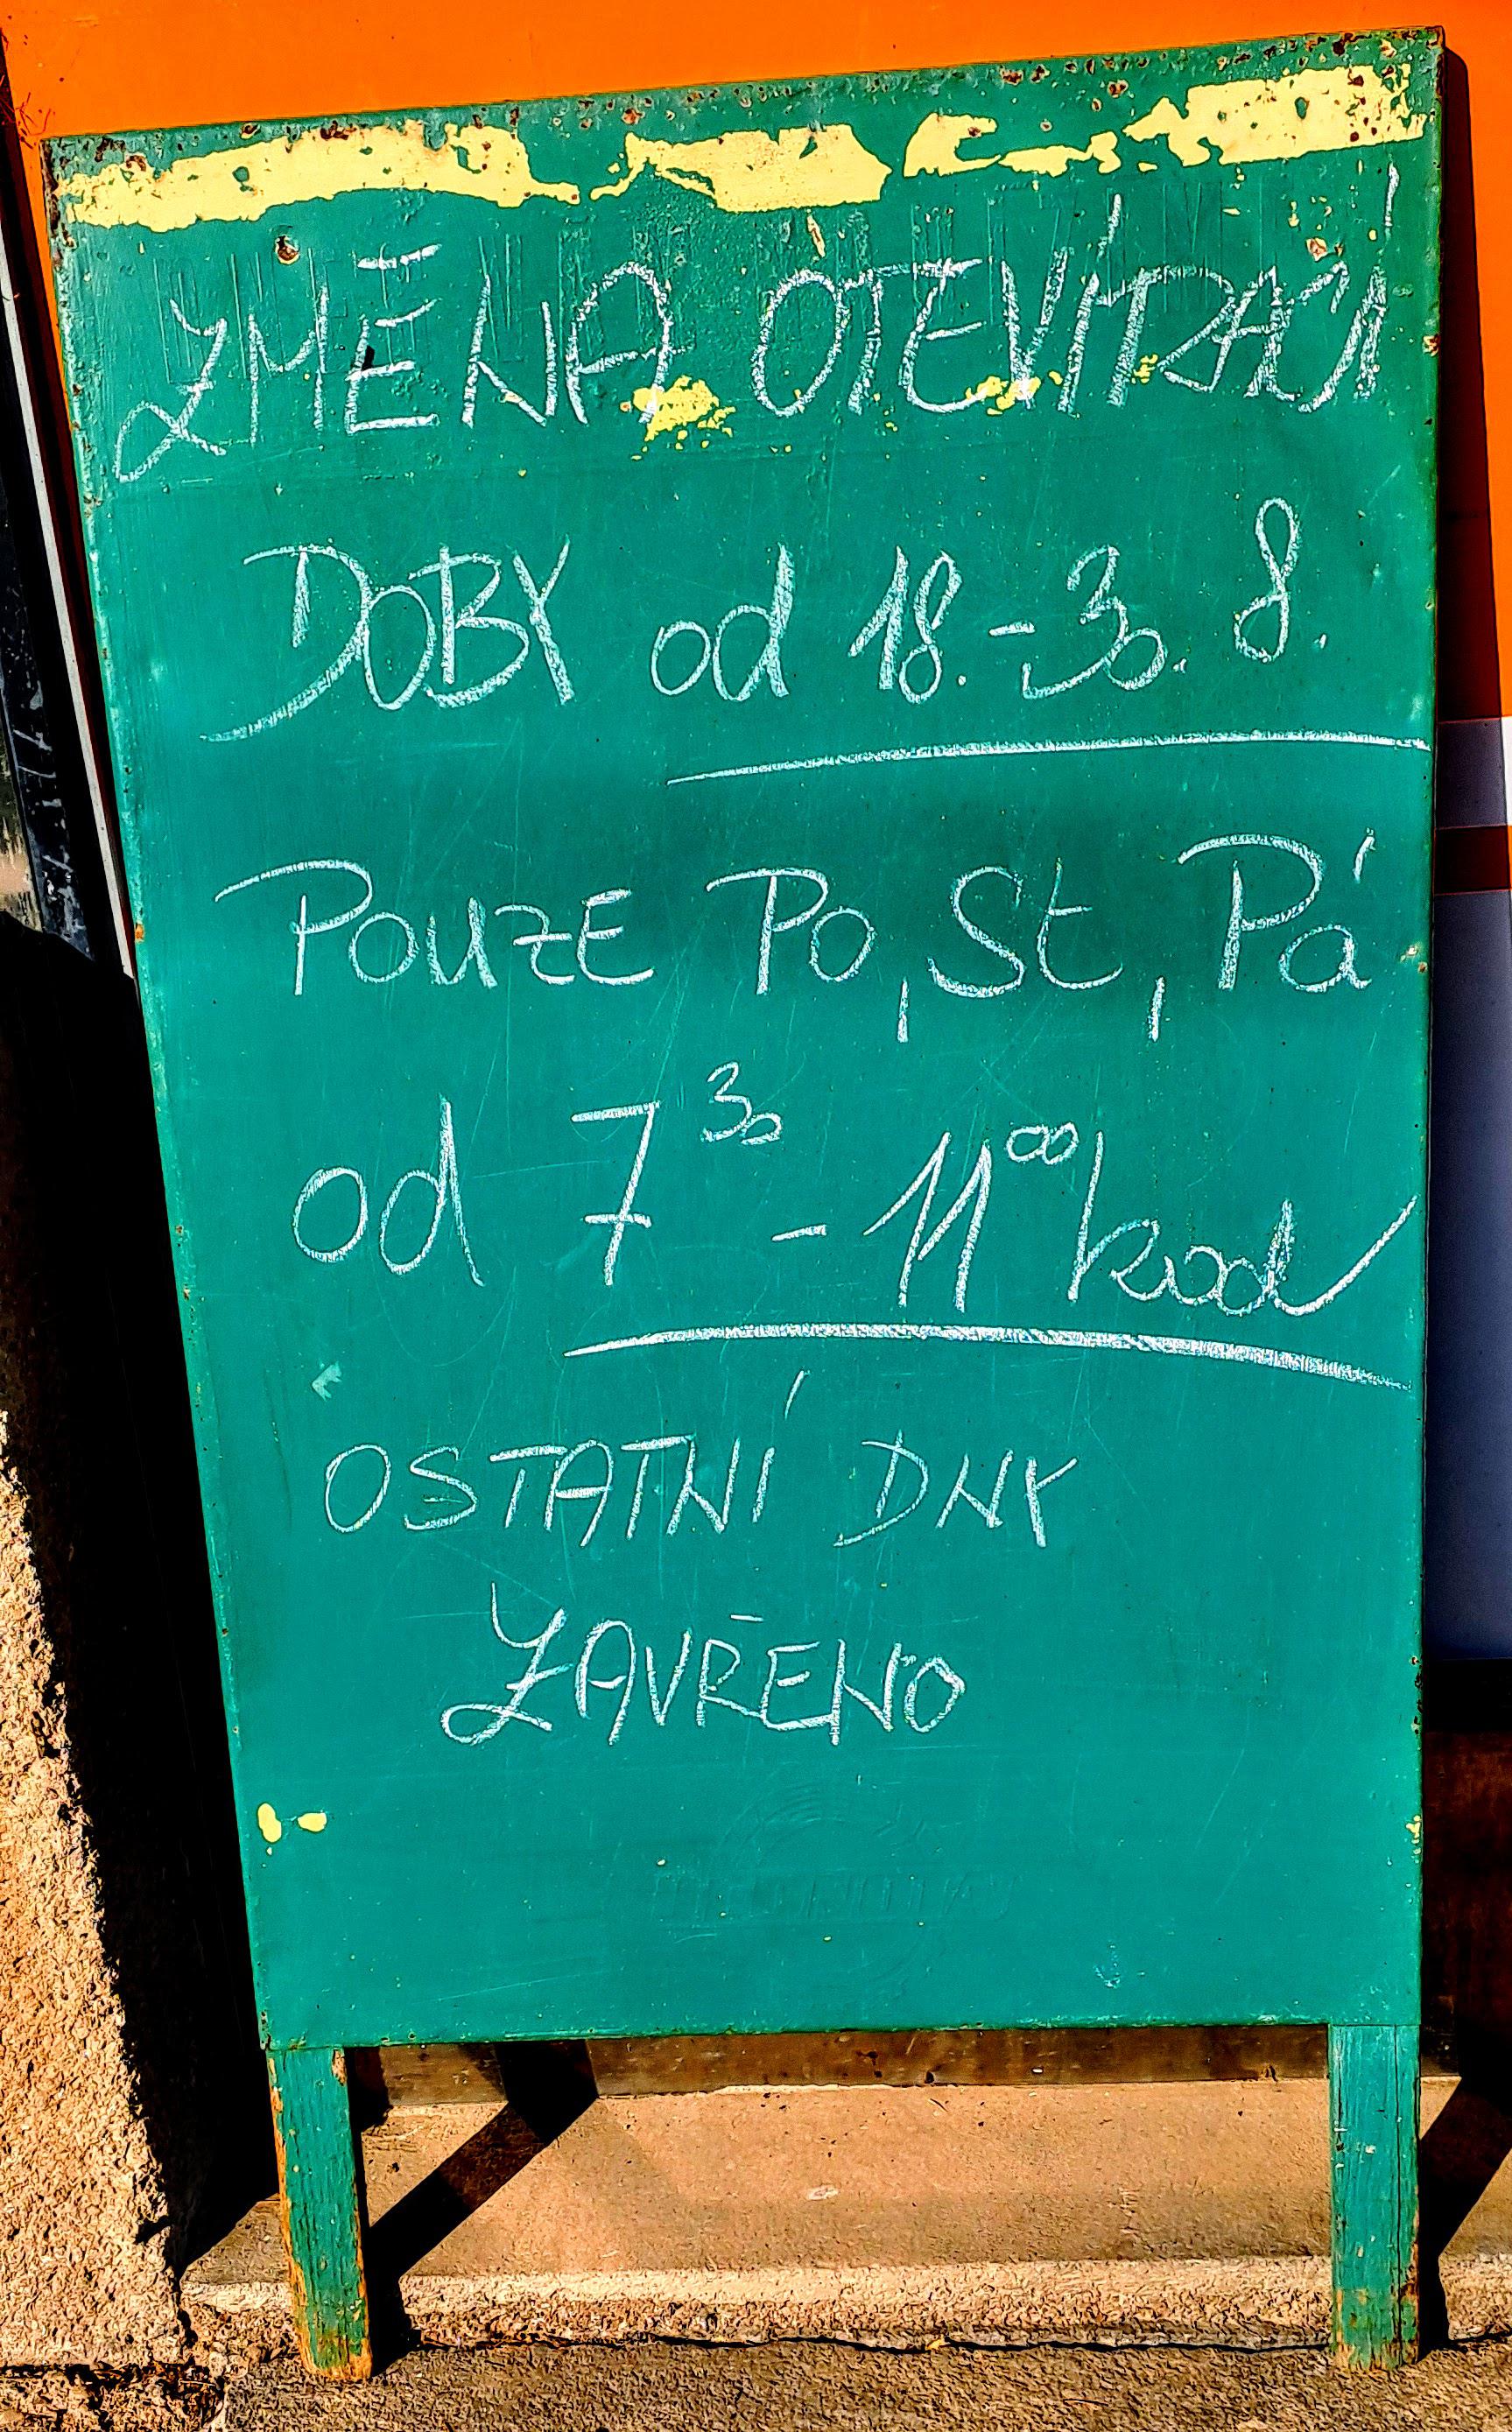 ZMĚNA OTEVÍRACÍ
DOBY od 18.-30. 8.
POUZE Po, St, Pá
od 7³⁰ - 11⁰⁰ hod
OSTATNÍ DNY
ZAVŘENO